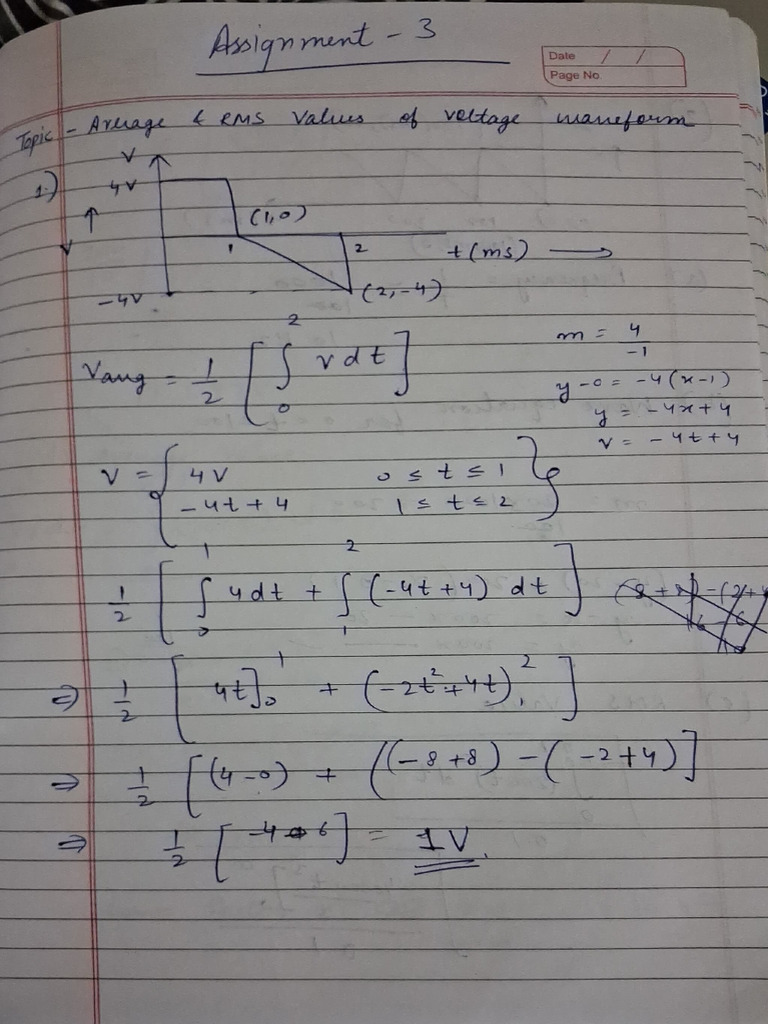 Assignment - 3
Date / /
Page No
Topic - Average & RMS Values of voltage waveform
1.)
V
4V
V
(1,0)
1
2
t(ms)
-4V
(2,-4)
Vavg = 1/2 [ ∫₀² v dt ]
m = 4/-1
y-0 = -4(x-1)
y = -4x+4
v = -4t+4
V = { 4V 0 ≤ t ≤ 1 }
-4t + 4 1 ≤ t ≤ 2
1/2 [ ∫₀¹ 4dt + ∫₁² (-4t + 4) dt ]
⇒ 1/2 [ 4t]₀¹ + (-2t²+4t)₁² ]
⇒ 1/2 [(4-0) + ((-8+8) - (-2+4)]
⇒ 1/2 [ -4 6 ] = 1V